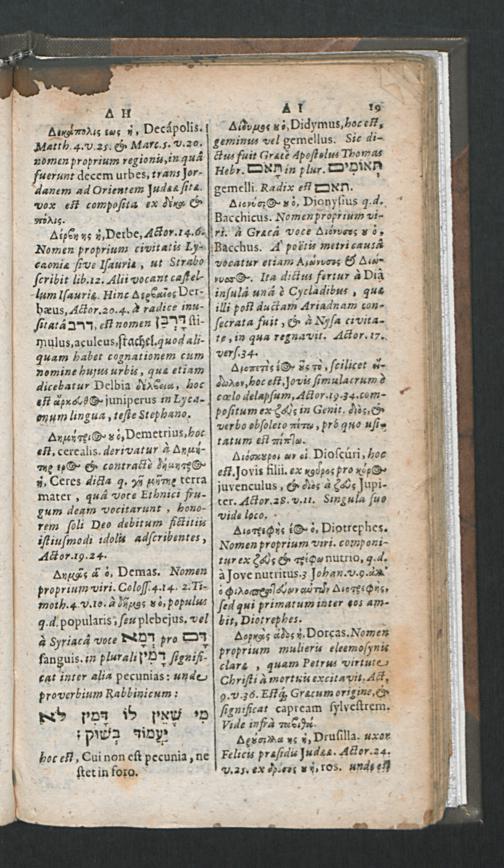 Δ Η
Δεκάπολις εως ἡ, Decápolis.
Matth. 4. v. 25. & Marc. 5. v. 20.
nomen proprium regionis, in quâ
fuerunt decem urbes, trans Jor-
danem ad Orientem Judææ sitæ
vox est composita ex δέκα &
πόλις.
Δέρβη ης ἡ, Derbe, Actor. 14. 6.
Nomen proprium civitatis Ly-
caoniæ sive Isauriæ, ut Strabo
scribit lib. 12. Alii vocant castel-
lum Isauriæ. Hinc Δερβαῖος Der-
bæus, Actor. 20. 4. à radice inu-
sitatâ דרב, est nomen דָּרְבָן sti-
mulus, aculeus, stachel, quod ali-
quam habet cognationem cum
nomine hujus urbis, quæ etiam
dicebatur Delbia δελβεία, hoc
est ἄρκευθ juniperus in Lyca-
onum lingua, teste Stephano.
Δημήτρι ου ὁ, Demetrius, hoc
est, cerealis. derivatur à Δημή-
τηρ ερ & contractè δήμητρ
ἡ, Ceres dicta q. γῆ μήτηρ terra
mater, quâ voce Ethnici fru-
gum deam vocitarunt, hono-
rem soli Deo debitum fictitiis
istiusmodi idolis adscribentes,
Actor. 19. 24.
Δημᾶς ᾶ ὁ, Demas. Nomen
proprium viri. Coloss. 4. 14. 2. Ti-
moth. 4. v. 10. à δῆμος ου ὁ, populus
q. d. popularis, seu plebejus, vel
à Syriacâ voce דְּמָא pro דָּם
sanguis. in plurali דָּמִין signifi-
cat inter alia pecunias: unde
proverbium Rabbinicum:
מִי שֶׁאֵין לוֹ דָּמִין לֹא
יַעֲמוֹד בְּשׁוּק:
hoc est, Cui non est pecunia, ne
stet in foro.
Δ Ι 19
Δίδυμος ου ὁ, Didymus, hoc est,
geminus vel gemellus. Sic di-
ctus fuit Græcè Apostolus Thomas
Hebr. תָּאֹם in plur. תְּאוֹמִים
gemelli. Radix est תאם.
Διονύσι ου ὁ, Dionysius q. d.
Bacchicus. Nomen proprium vi-
ri. à Græcâ voce Διόνυσος ου ὁ,
Bacchus. A' poëtis metri causâ
vocatur etiam Διώνυσος & Διών-
νυσ. Ita dictus fertur à Diâ
insulâ unâ è Cycladibus, quæ
illi post ductam Ariadnam con-
secrata fuit, & à Nysa civita-
te, in qua regnavit. Actor. 17.
vers. 34.
Διοπετὲς έ ς τὸ, scilicet εἴ-
δωλον, hoc est, Jovis simulacrum è
cœlo delapsum, Actor. 19. 34. com-
positum ex ζεὺς in Genit. διὸς, &
verbo obsoleto πέτω, prò quo usi-
tatum est πίπτω.
Διόσκυροι ων οἱ Dioscúri, hoc
est, Jovis filii. ex κοῦρος pro κόρ
juvenculus, & διὸς à ζεὺς Jupi-
ter. Actor. 28. v. 11. Singula suo
vide loco.
Διοτρεφὴς έ ὁ, Diotrephes.
Nomen proprium viri. componi-
tur ex ζεὺς & τρέφω nutrio, q. d.
à Jove nutritus. 3 Johan. v. 9. ἀλλ
ὁ φιλοπρωτεύων αὐτῶν Διοτρεφὴς,
sed qui primatum inter eos am-
bit, Diotrephes.
Δορκὰς άδος ἡ, Dorcas. Nomen
proprium mulieris eleemosynis
claræ, quam Petrus virtute
Christi à mortuis excitavit, Act.
9. v. 36. Estq́, Græcum origine, &
significat capream sylvestrem.
Vide infrà ταβιθά.
Δρύσιλλα ης ἡ, Drusilla. uxor
Felicis præsidis Judææ. Actor. 24.
v. 25. ex δρόσος ου ἡ, ros. unde est